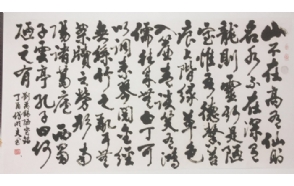 山不在高有仙則
名水不在深有
龍則靈斯是陋
室惟吾德馨苔
痕上階綠草色
入簾青談笑有鴻
儒往來無白丁可
以調素琴閱金經
無絲竹之亂耳無
案牘之勞形南
陽諸葛廬西蜀
子雲亭孔子曰何
陋之有
劉禹錫陋室銘